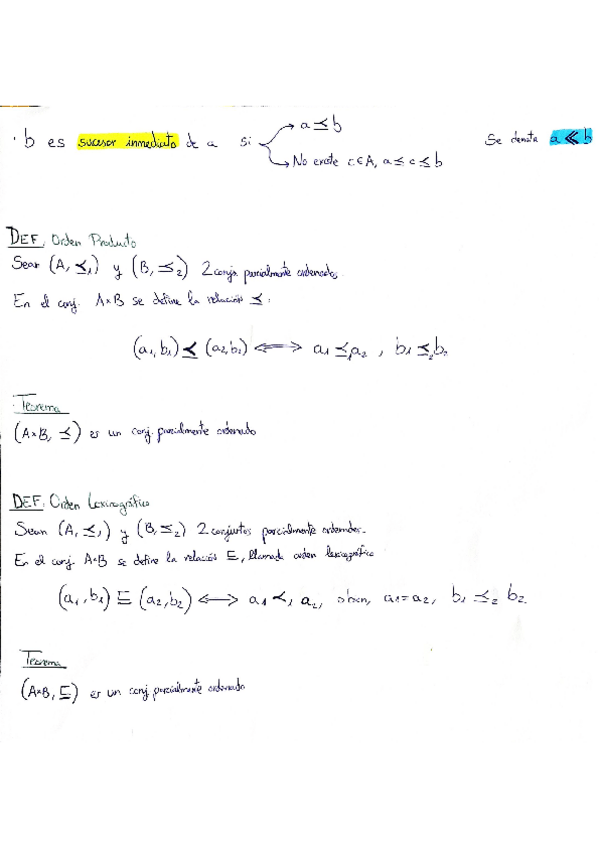 → a ≼ b
· b es sucesor inmediato de a si
Se denota a ≪ b
→ No existe c ∈ A, a ≤ c ≤ b
DEF. Orden Producto
Sean (A, ≼₁) y (B, ≼₂) 2 conj. parcialmente ordenados.
En el conj. A×B se define la relación ≼ :
(a₁, b₁) ≼ (a₂, b₂) ⟺ a₁ ≼₁ a₂ , b₁ ≼₂ b₂
Teorema
(A×B, ≼) es un conj. parcialmente ordenado
DEF. Orden Lexicográfico
Sean (A, ≼₁) y (B, ≼₂) 2 conjuntos parcialmente ordenados.
En el conj. A×B se define la relación ⊑, llamada orden lexicográfico
(a₁, b₁) ⊑ (a₂, b₂) ⟺ a₁ ≺₁ a₂, o bien, a₁ = a₂, b₁ ≼₂ b₂.
Teorema
(A×B, ⊑) es un conj. parcialmente ordenado